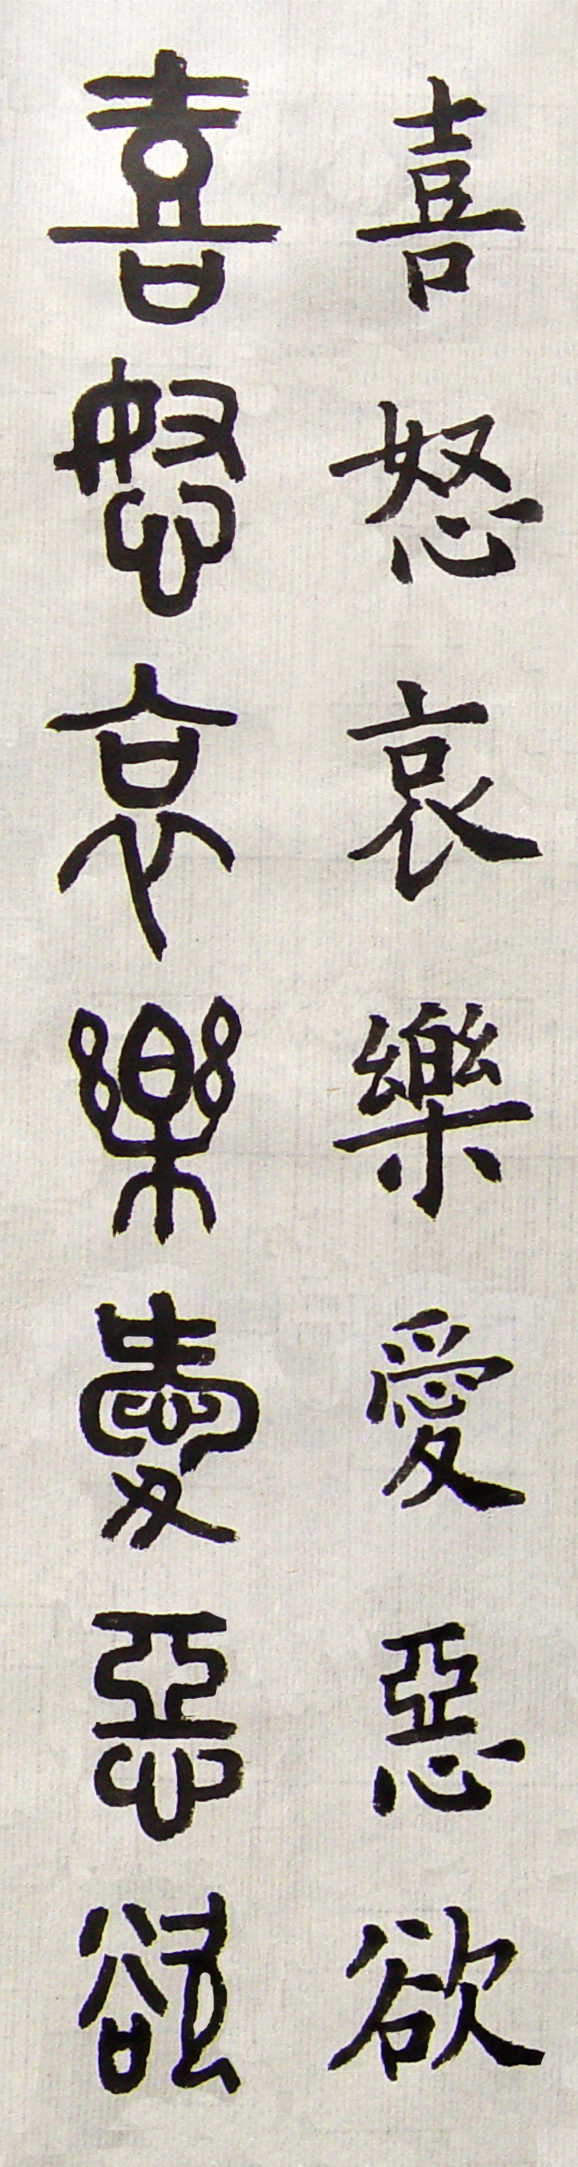 喜怒哀樂愛惡欲
喜怒哀樂愛惡欲